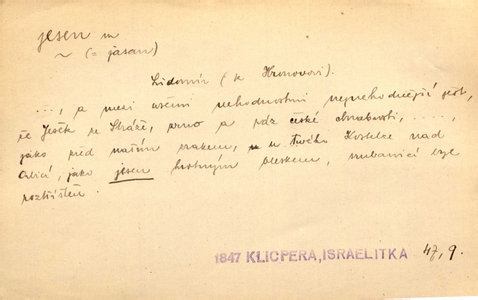 jesen m
~ (= jasan)
Lidomír (k Hronovovi).
..., a mezi všemi nehodnostmi nejnehodnější jest,
že Ješek ze Stráže, prvo a pdz české chrabrosti, ...,
jako před naším zrakem, u tvého Kostelce nad
Orlicí, jako jesen hrotným bleskem,
roztříštěn.
1847 KLICPERA, ISRAELITKA 47, 9.